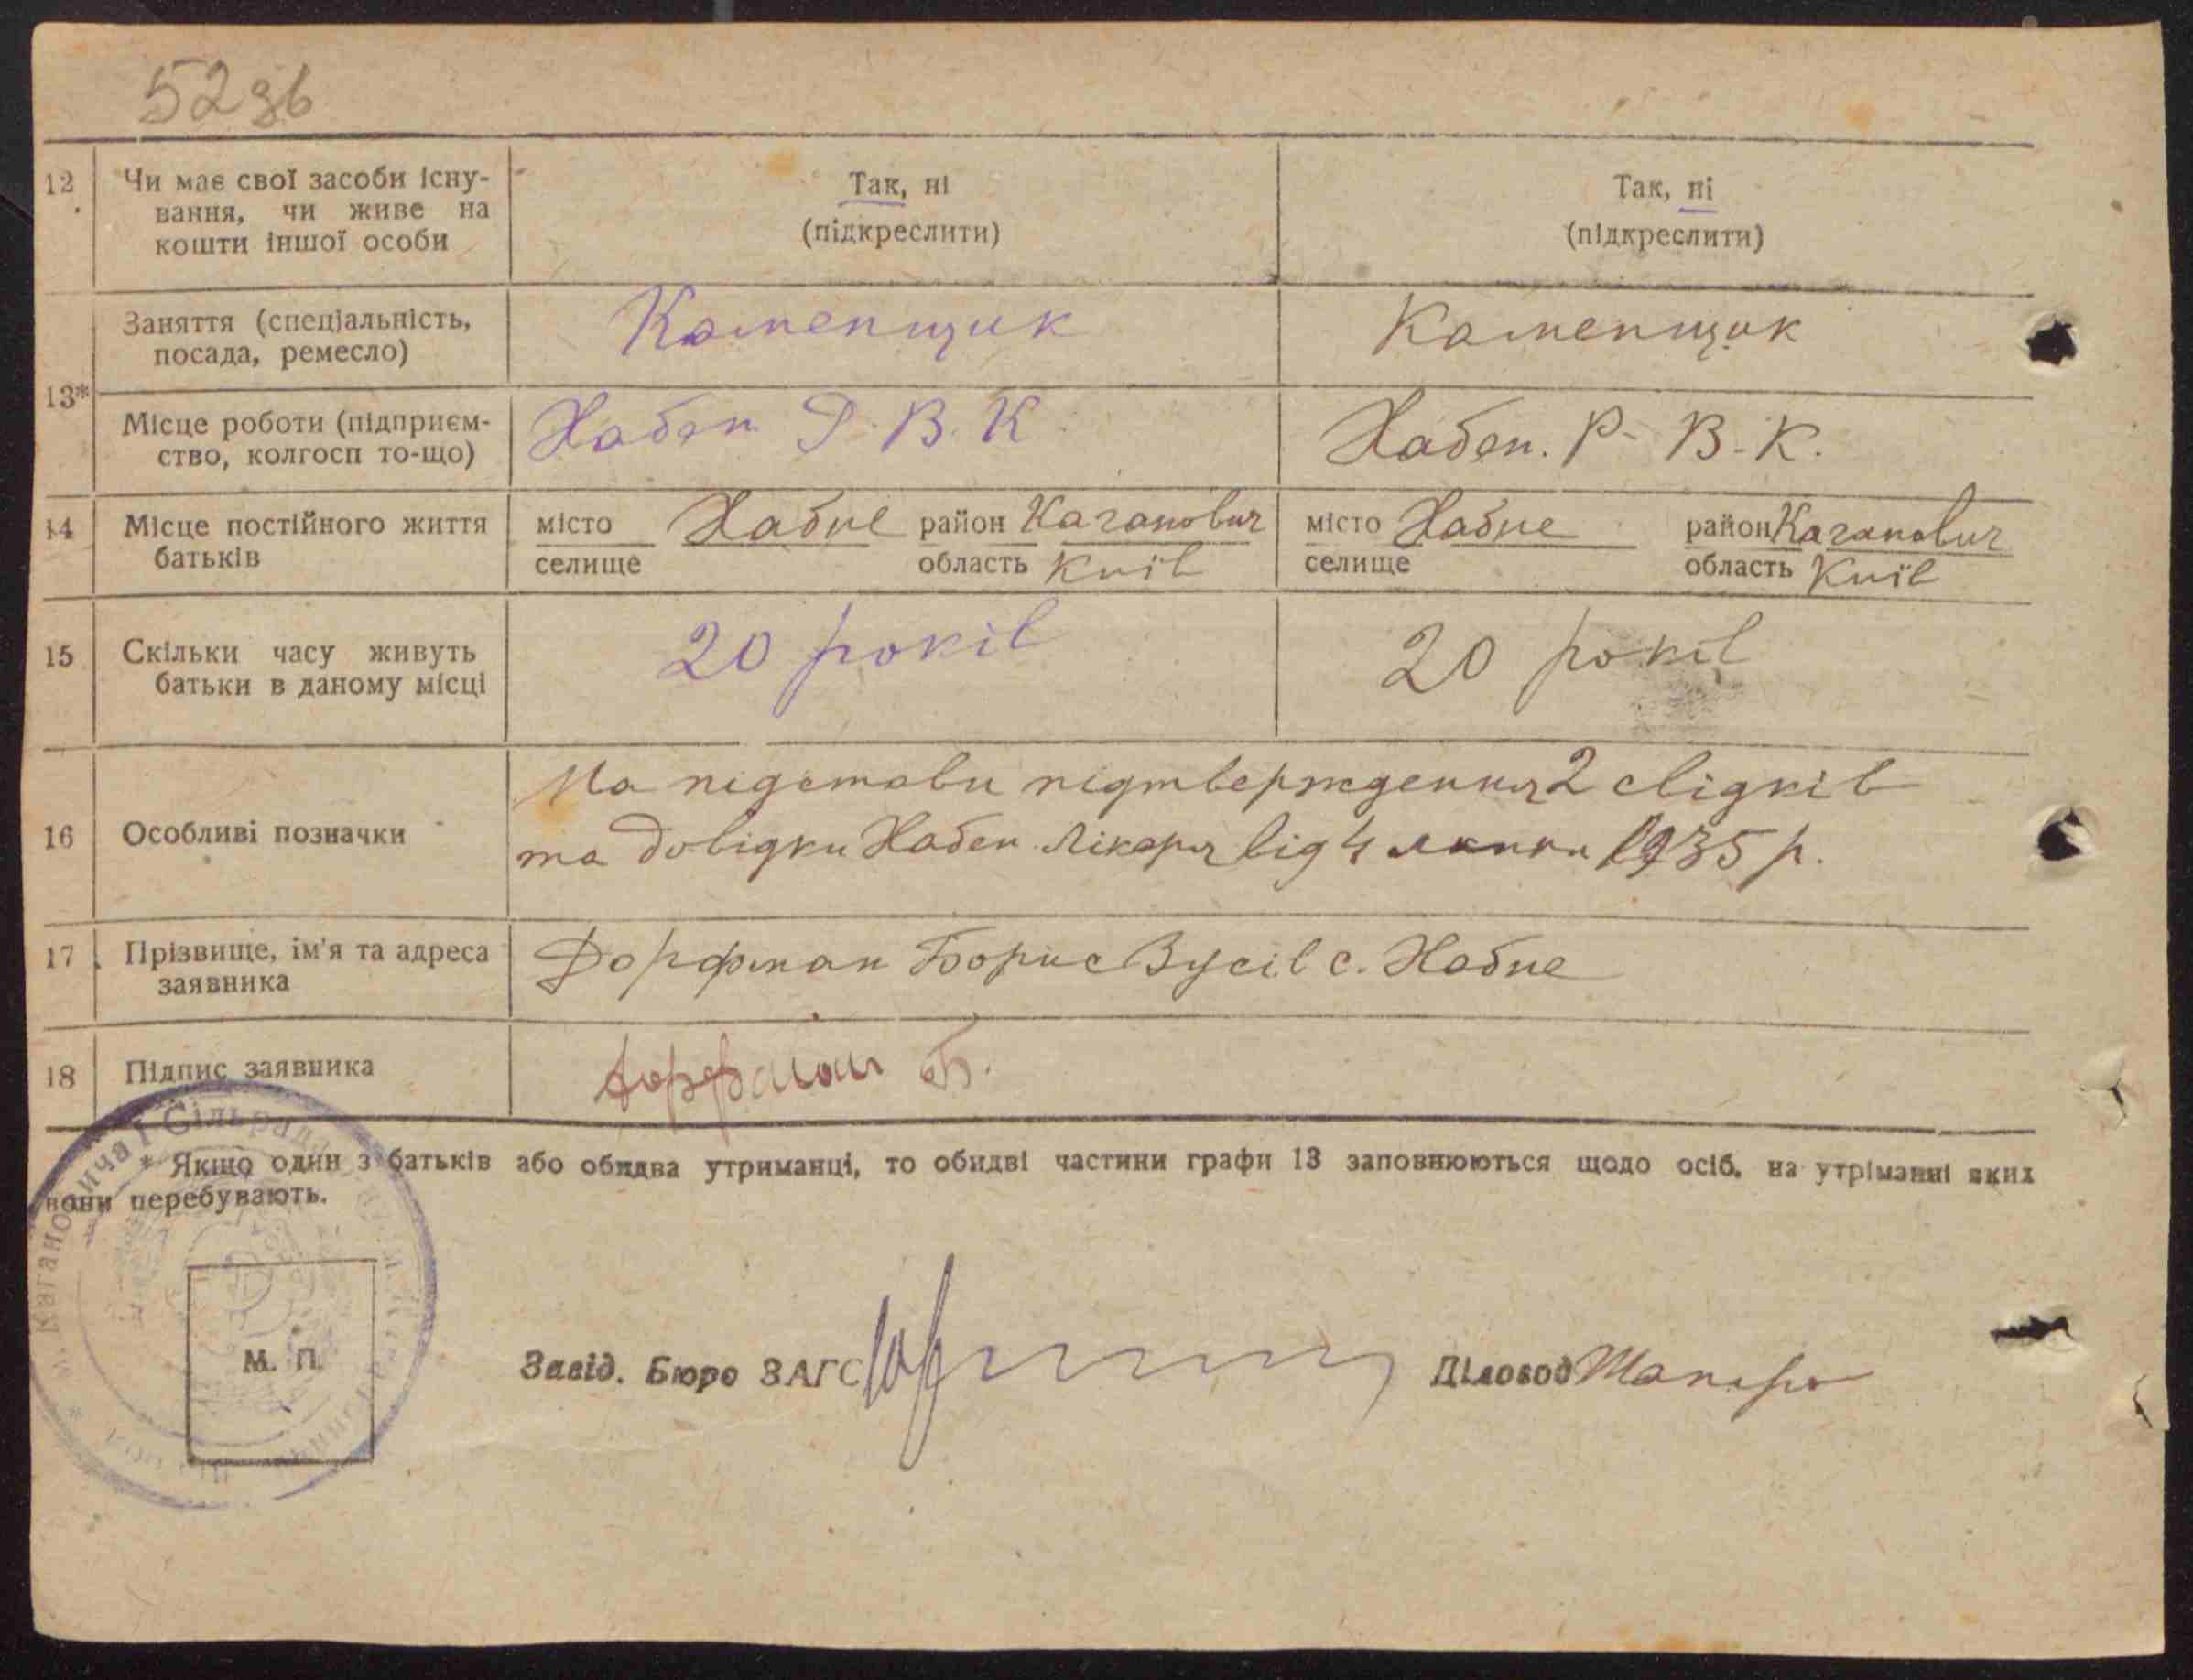 52зв
12 Чи має свої засоби існу-
вання, чи живе на
кошти іншої особи
Так, ні
(підкреслити)
Так, ні
(підкреслити)
13*
Заняття (спеціальність,
посада, ремесло)
Каменщик
Каменщик
Місце роботи (підприєм-
ство, колгосп то-що)
Хабен Р. В. К
Хабен. Р. В. К.
14 Місце постійного життя
батьків
місто Хабне район Каганович
селище область Київ
місто Хабне район Каганович
селище область Київ
15 Скільки часу живуть
батьки в даному місці
20 років
20 років
16 Особливі позначки
На підстави підтвердження 2 свідків
та довідки Хабен. Лікаря від 4 1935 р.
17 Прізвище, ім'я та адреса
заявника
Дорфман Борис Зусів с. Хабне
18 Підпис заявника
Дорфман Б.
* Якщо один з батьків або обидва утриманці, то обидві частини графи 13 заповнюються щодо осіб, на утріманні яких
вони перебувають.
м. Кагановича І Сільрада
М. П.
Завід. Бюро ЗАГС
Діловод Шапиро